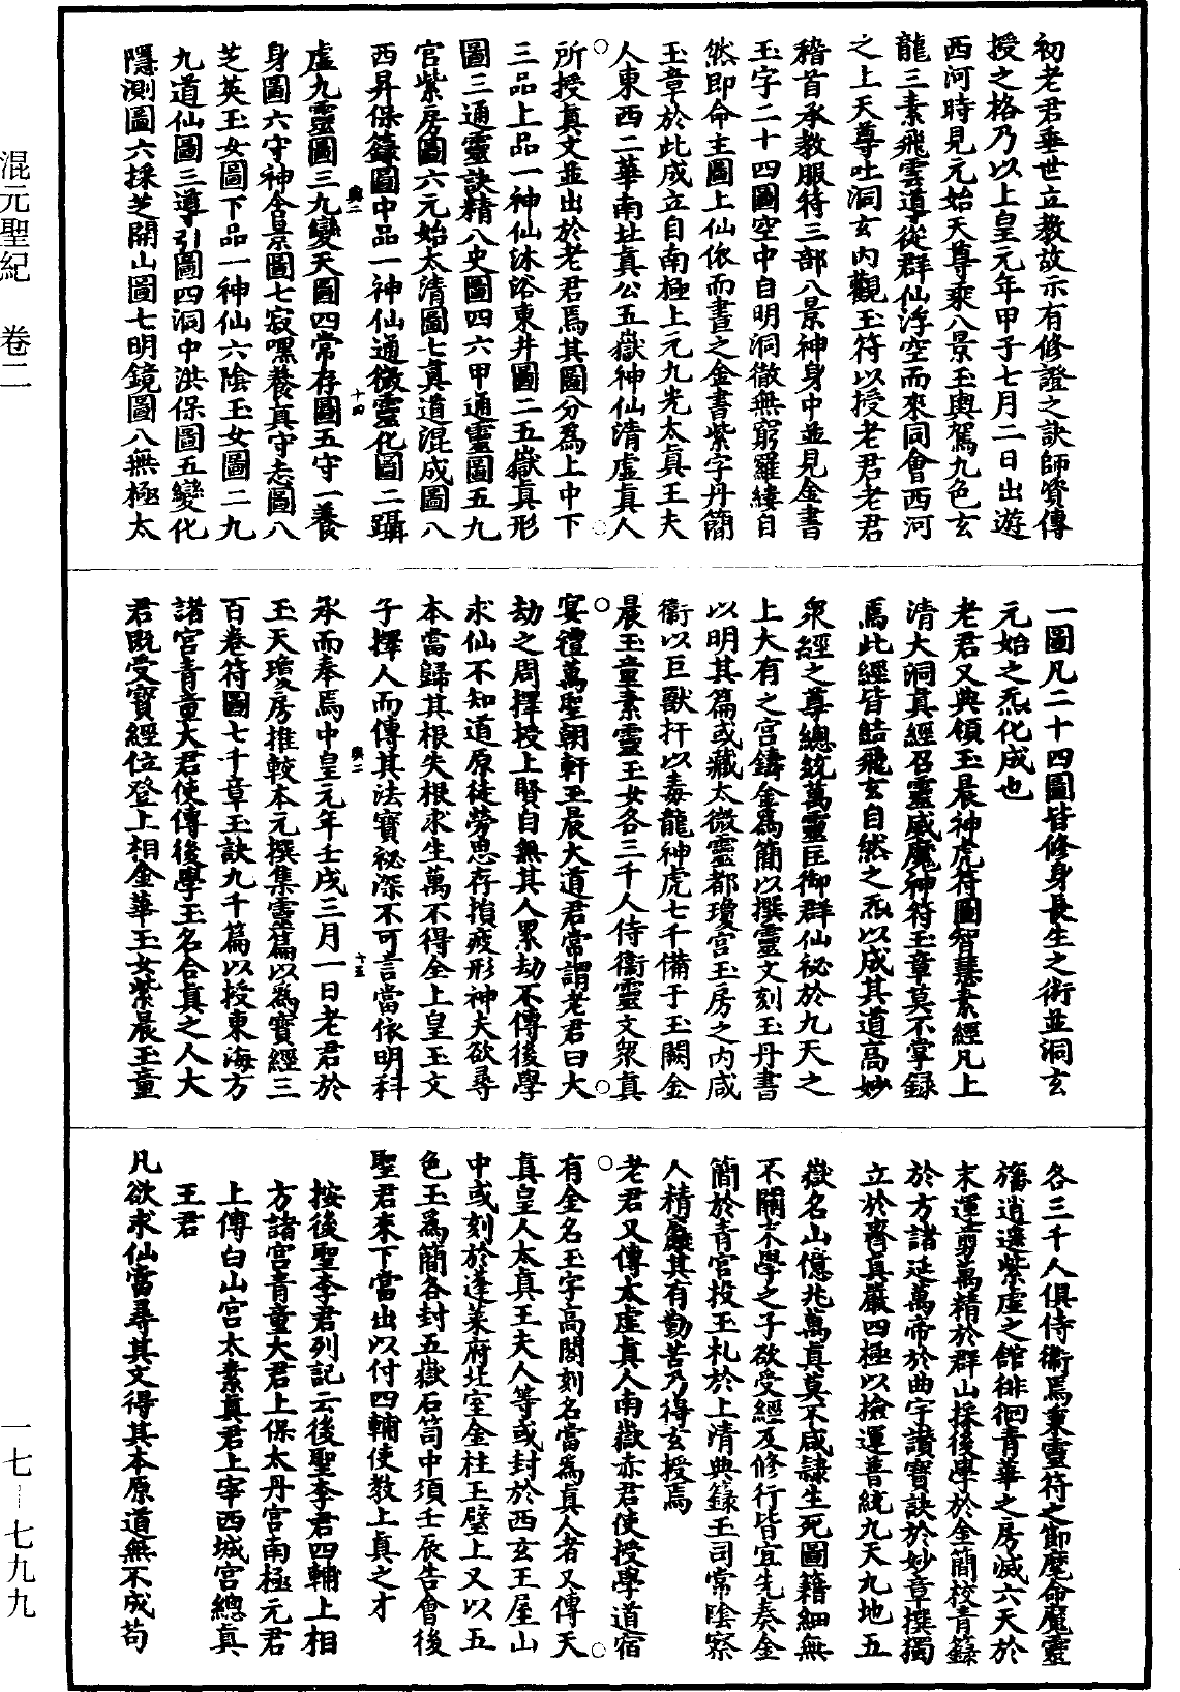 混元聖紀　卷二
初老君垂世立教故示有修證之訣師資傳
授之格乃以上皇元年甲子七月二日出遊
西河時見元始天尊乘八景玉輿駕九色玄
龍三素飛雲導從群仙浮空而來同會西河
之上天尊吐洞玄內觀玉符以授老君老君
稽首承教服符三部八景神身中並見金書
玉字二十四圖空中自明洞徹無窮羅縷自
然即命主圖上仙依而畫之金書紫字丹簡
玉章於此成立自南極上元九光太真王夫
人東西二華南北真公五嶽神仙清虛真人
所授真文並出於老君焉其圖分為上中下
三品上品一神仙沐浴東井圖二五嶽真形
圖三通靈訣精八史圖四六甲通靈圖五九
宮紫房圖六元始太清圖七真道混成圖八
西昇保籙圖中品一神仙通微靈化圖二躡
興二
十四
虛九靈圖三九變天圖四常存圖五守一養
身圖六守神含景圖七寂嘿養真守志圖八
芝英玉女圖下品一神仙六陰玉女圖二九
九道仙圖三導引圖四洞中洪保圖五變化
隱測圖六採芝開山圖七明鏡圖八無極太
一圖凡二十四圖皆修身長生之術並洞玄
元始之炁化成也
老君又典領玉晨神虎符圖智慧素經凡上
清大洞真經召靈威魔神符玉章莫不掌錄
焉此經皆結飛玄自然之炁以成其道高妙
眾經之尊總統萬靈匡御群仙祕於九天之
上大有之宮鑄金為簡以撰靈文刻玉丹書
以明其篇或藏太微靈都瓊宮玉房之內咸
衛以巨獸扞以毒龍神虎七千備于玉闕金
晨玉童素靈玉女各三千人侍衛靈文眾真
宴禮萬聖朝軒玉晨大道君常謂老君曰大
劫之周擇授上賢自無其人累劫不傳後學
求仙不知道原徒勞思存損疲形神夫欲尋
本當歸其根失根求生萬不得全上皇玉文
子擇人而傳其法寶祕深不可言當依明科
興二
十五
承而奉焉中皇元年壬戌三月一日老君於
玉天瓊房推較本元撰集靈篇以為寶經三
百卷符圖七千章玉訣九千篇以授東海方
諸宮青童大君使傳後學玉名合真之人大
君既受寶經位登上相金華玉女紫晨玉童
各三千人俱侍衛焉秉靈符之節麾命魔靈
旛逍遙紫虛之館徘徊青華之房滅六天於
末運剪萬精於群山採後學於金簡校青籙
於方諸延萬帝於曲宇讚寶訣於妙章撰獨
立於齊真嚴四極以撿運普統九天九地五
嶽名山億兆萬真莫不咸隸生死圖籍細無
不關末學之子欲受經及修行皆宜先奏金
簡於青宮投玉札於上清典籙玉司常陰察
人精麤其有勤苦乃得玄授焉
老君又傳太虛真人南嶽赤君使授學道宿
有金名玉字高閣刻名當為真人者又傳天
真皇人太真王夫人等或封於西玄王屋山
中或刻於蓬萊府北室金柱玉璧上又以五
色玉為簡各封五嶽石笥中須壬辰告會後
聖君來下當出以付四輔使教上真之才
按後聖李君列記云後聖李君四輔上相
方諸宮青童大君上保太丹宮南極元君
上傅白山宮太素真君上宰西城宮總真
王君
凡欲求仙當尋其文得其本原道無不成苟
一七—七九九